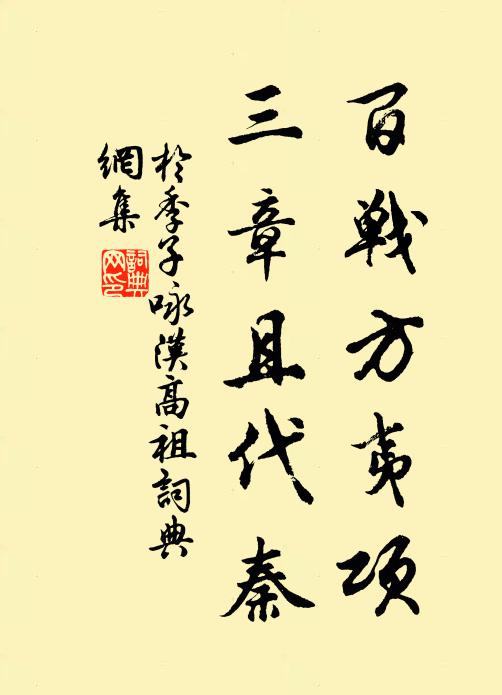 百戦方夷項
三章且代秦
於季子咏漢高祖詞典
網集
詞典
网印